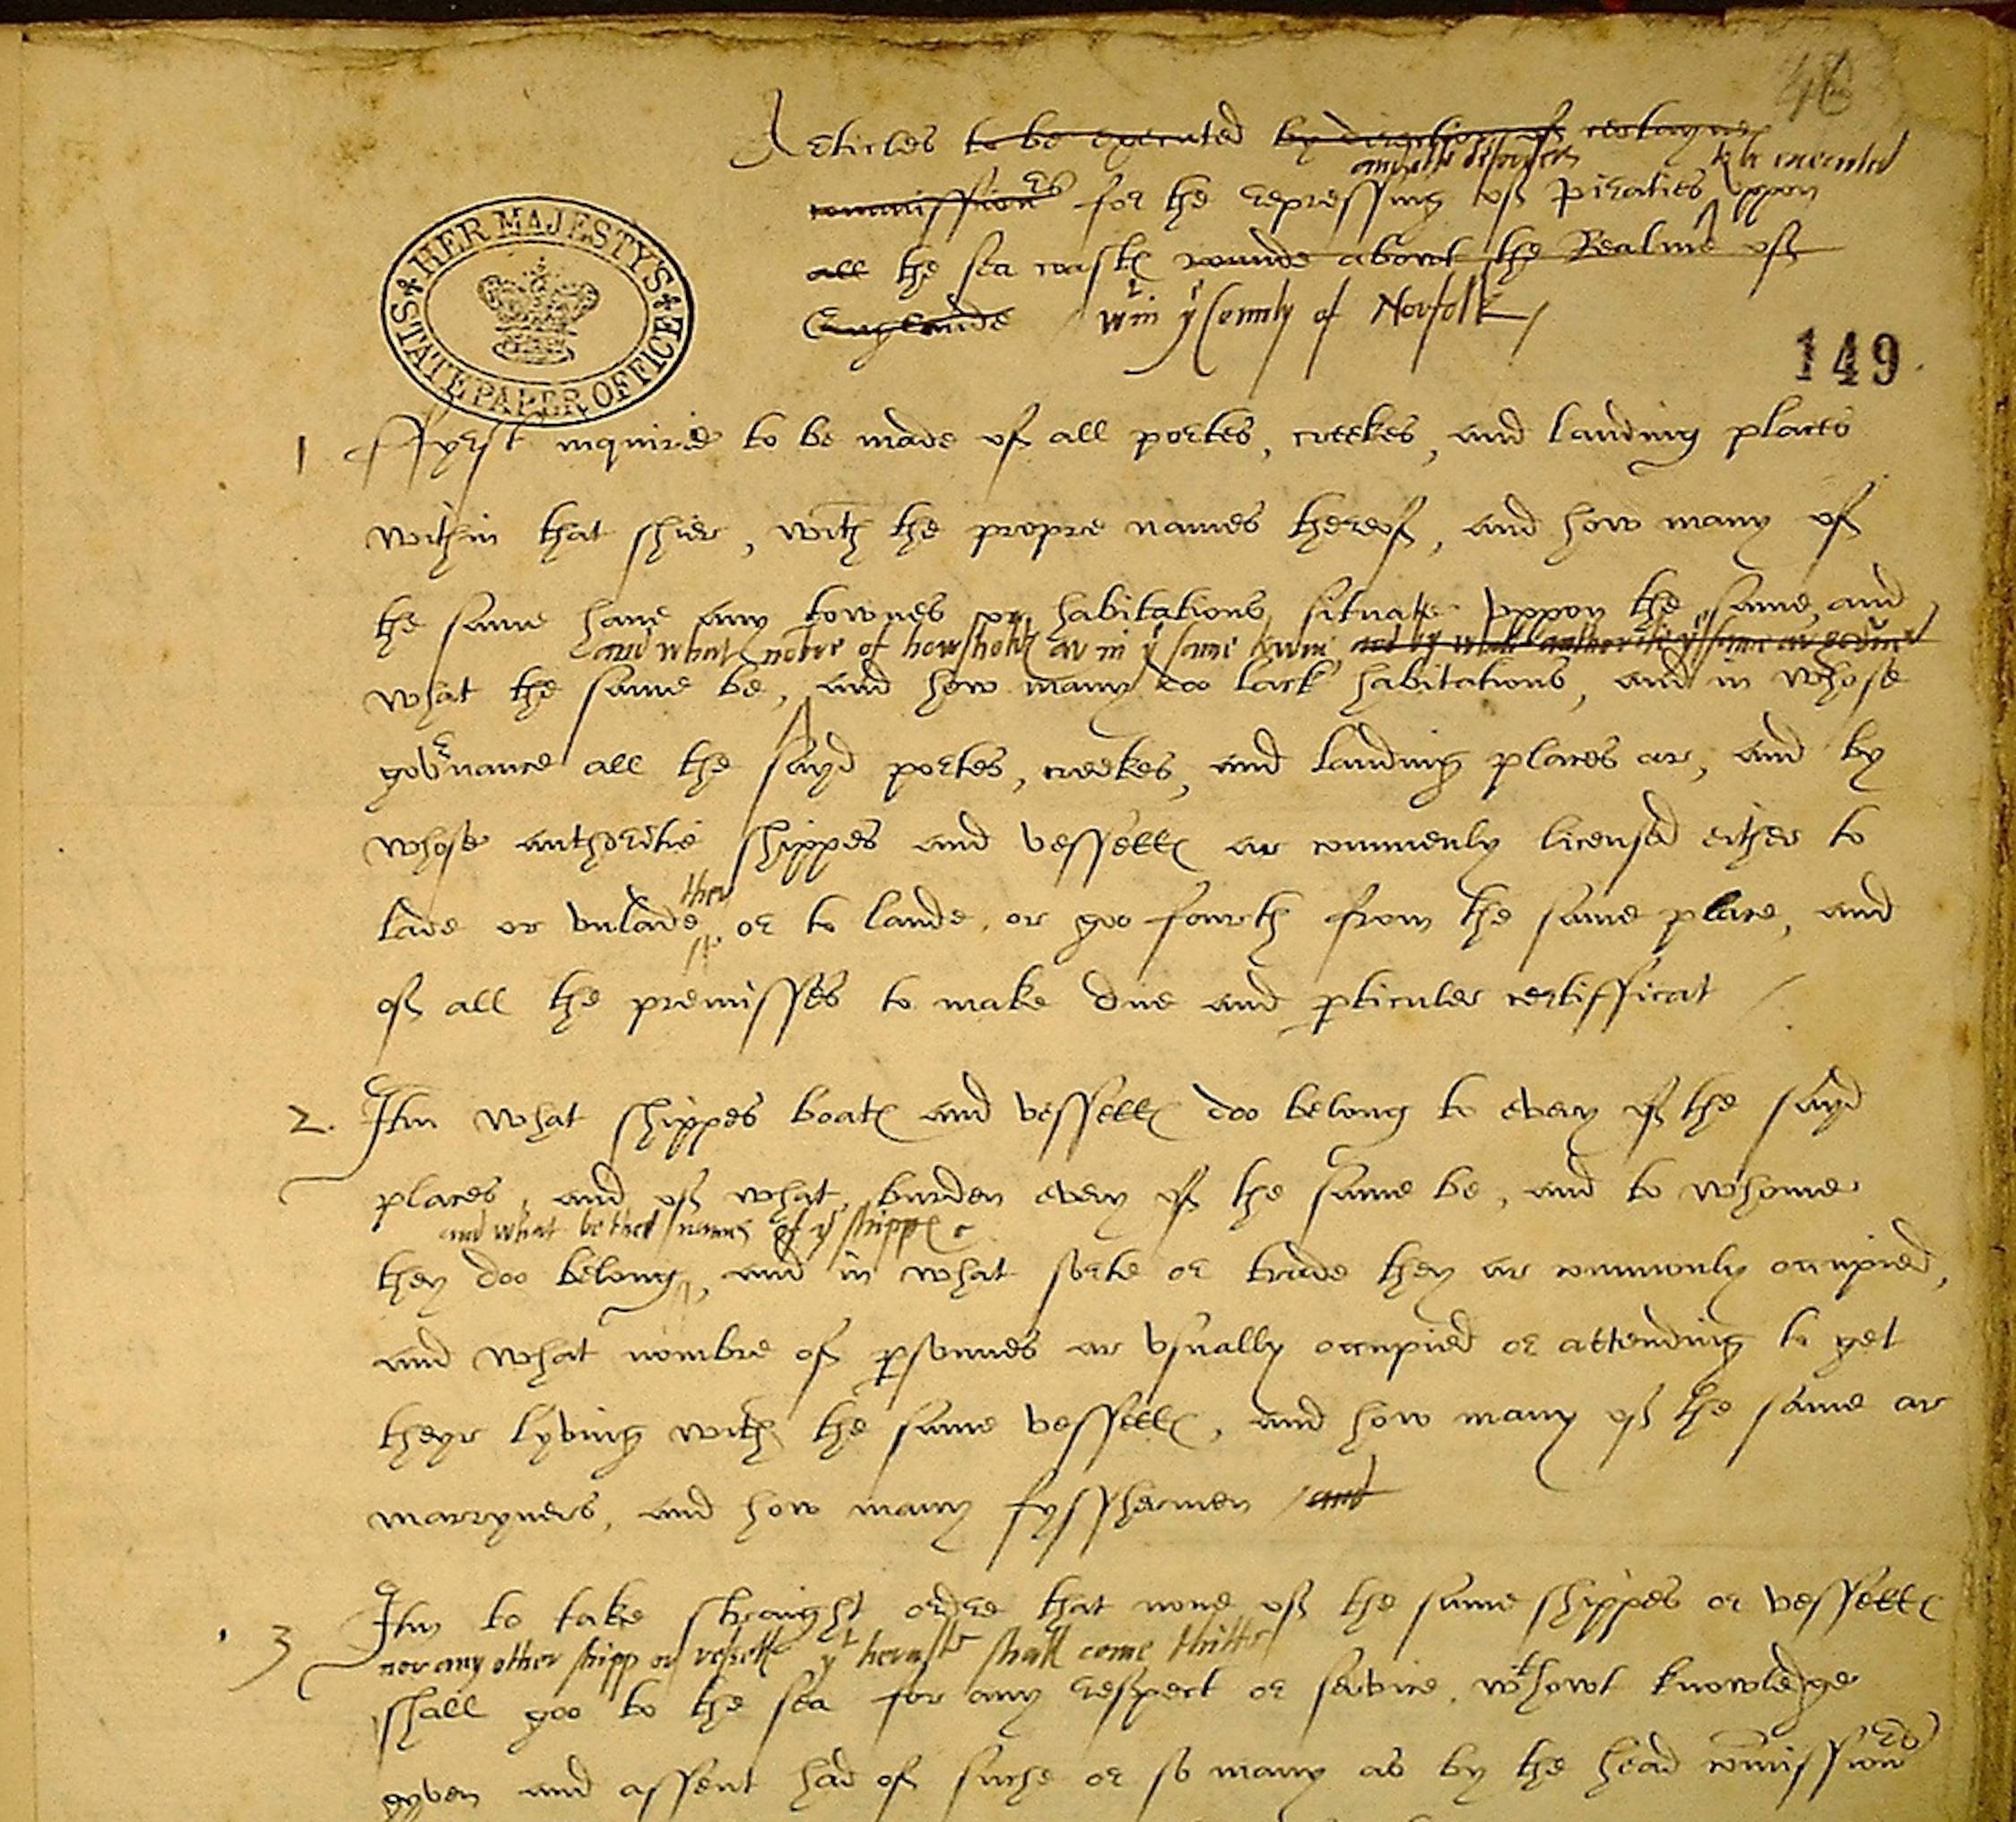 46
Articles to be executed by direction of certayne
and other disorders to be executed
commissioners for the repressing off piraties uppon
all the sea costes rounde about the Realme off
Englande wtin ye County of Norfolk
HER MAJESTY'S STATE PAPER OFFICE
149
1 Ffyrst inquirie to be made off all portes, creekes, and landing places
within that shier, with the propre names thereof, and how many off
the same have any townes or habitations situate uppon the same, and
and what nombre of housholdes ar in ye same towne and by what authoritie ye same ar
what the same be, and how many doo lack habitations, and in whose
governance all the sayd portes, creekes, and landing places ar, and by
whose authoritie shippes and vesselles ar commenly licensed either to
ther
lade or vnlade, or to lande, or goo fourth from the same place, and
off all the premisses to make due and pticuler certifficat
2. Itm what shippes boates and vesselles doo belong to every off the sayd
places, and off what burden every off the same be, and to whome
and what be the names of ye shippes
they doo belong, and in what sorte or trade they ar commonly occupied,
and what nombre off psonnes ar vsually occupied or attending to get
theyr lyving with the same vesselles, and how many off the same ar
marryners, and how many fysshermen and
3 Itm to take straight ordre that none off the same shippes or vesselles
nor any other shipp or vesselle yt herafter shall come thither
shall goo to the sea for any respect or service, wthowt knowledge
gyven and assent had off suche or so many as by the head comissioners